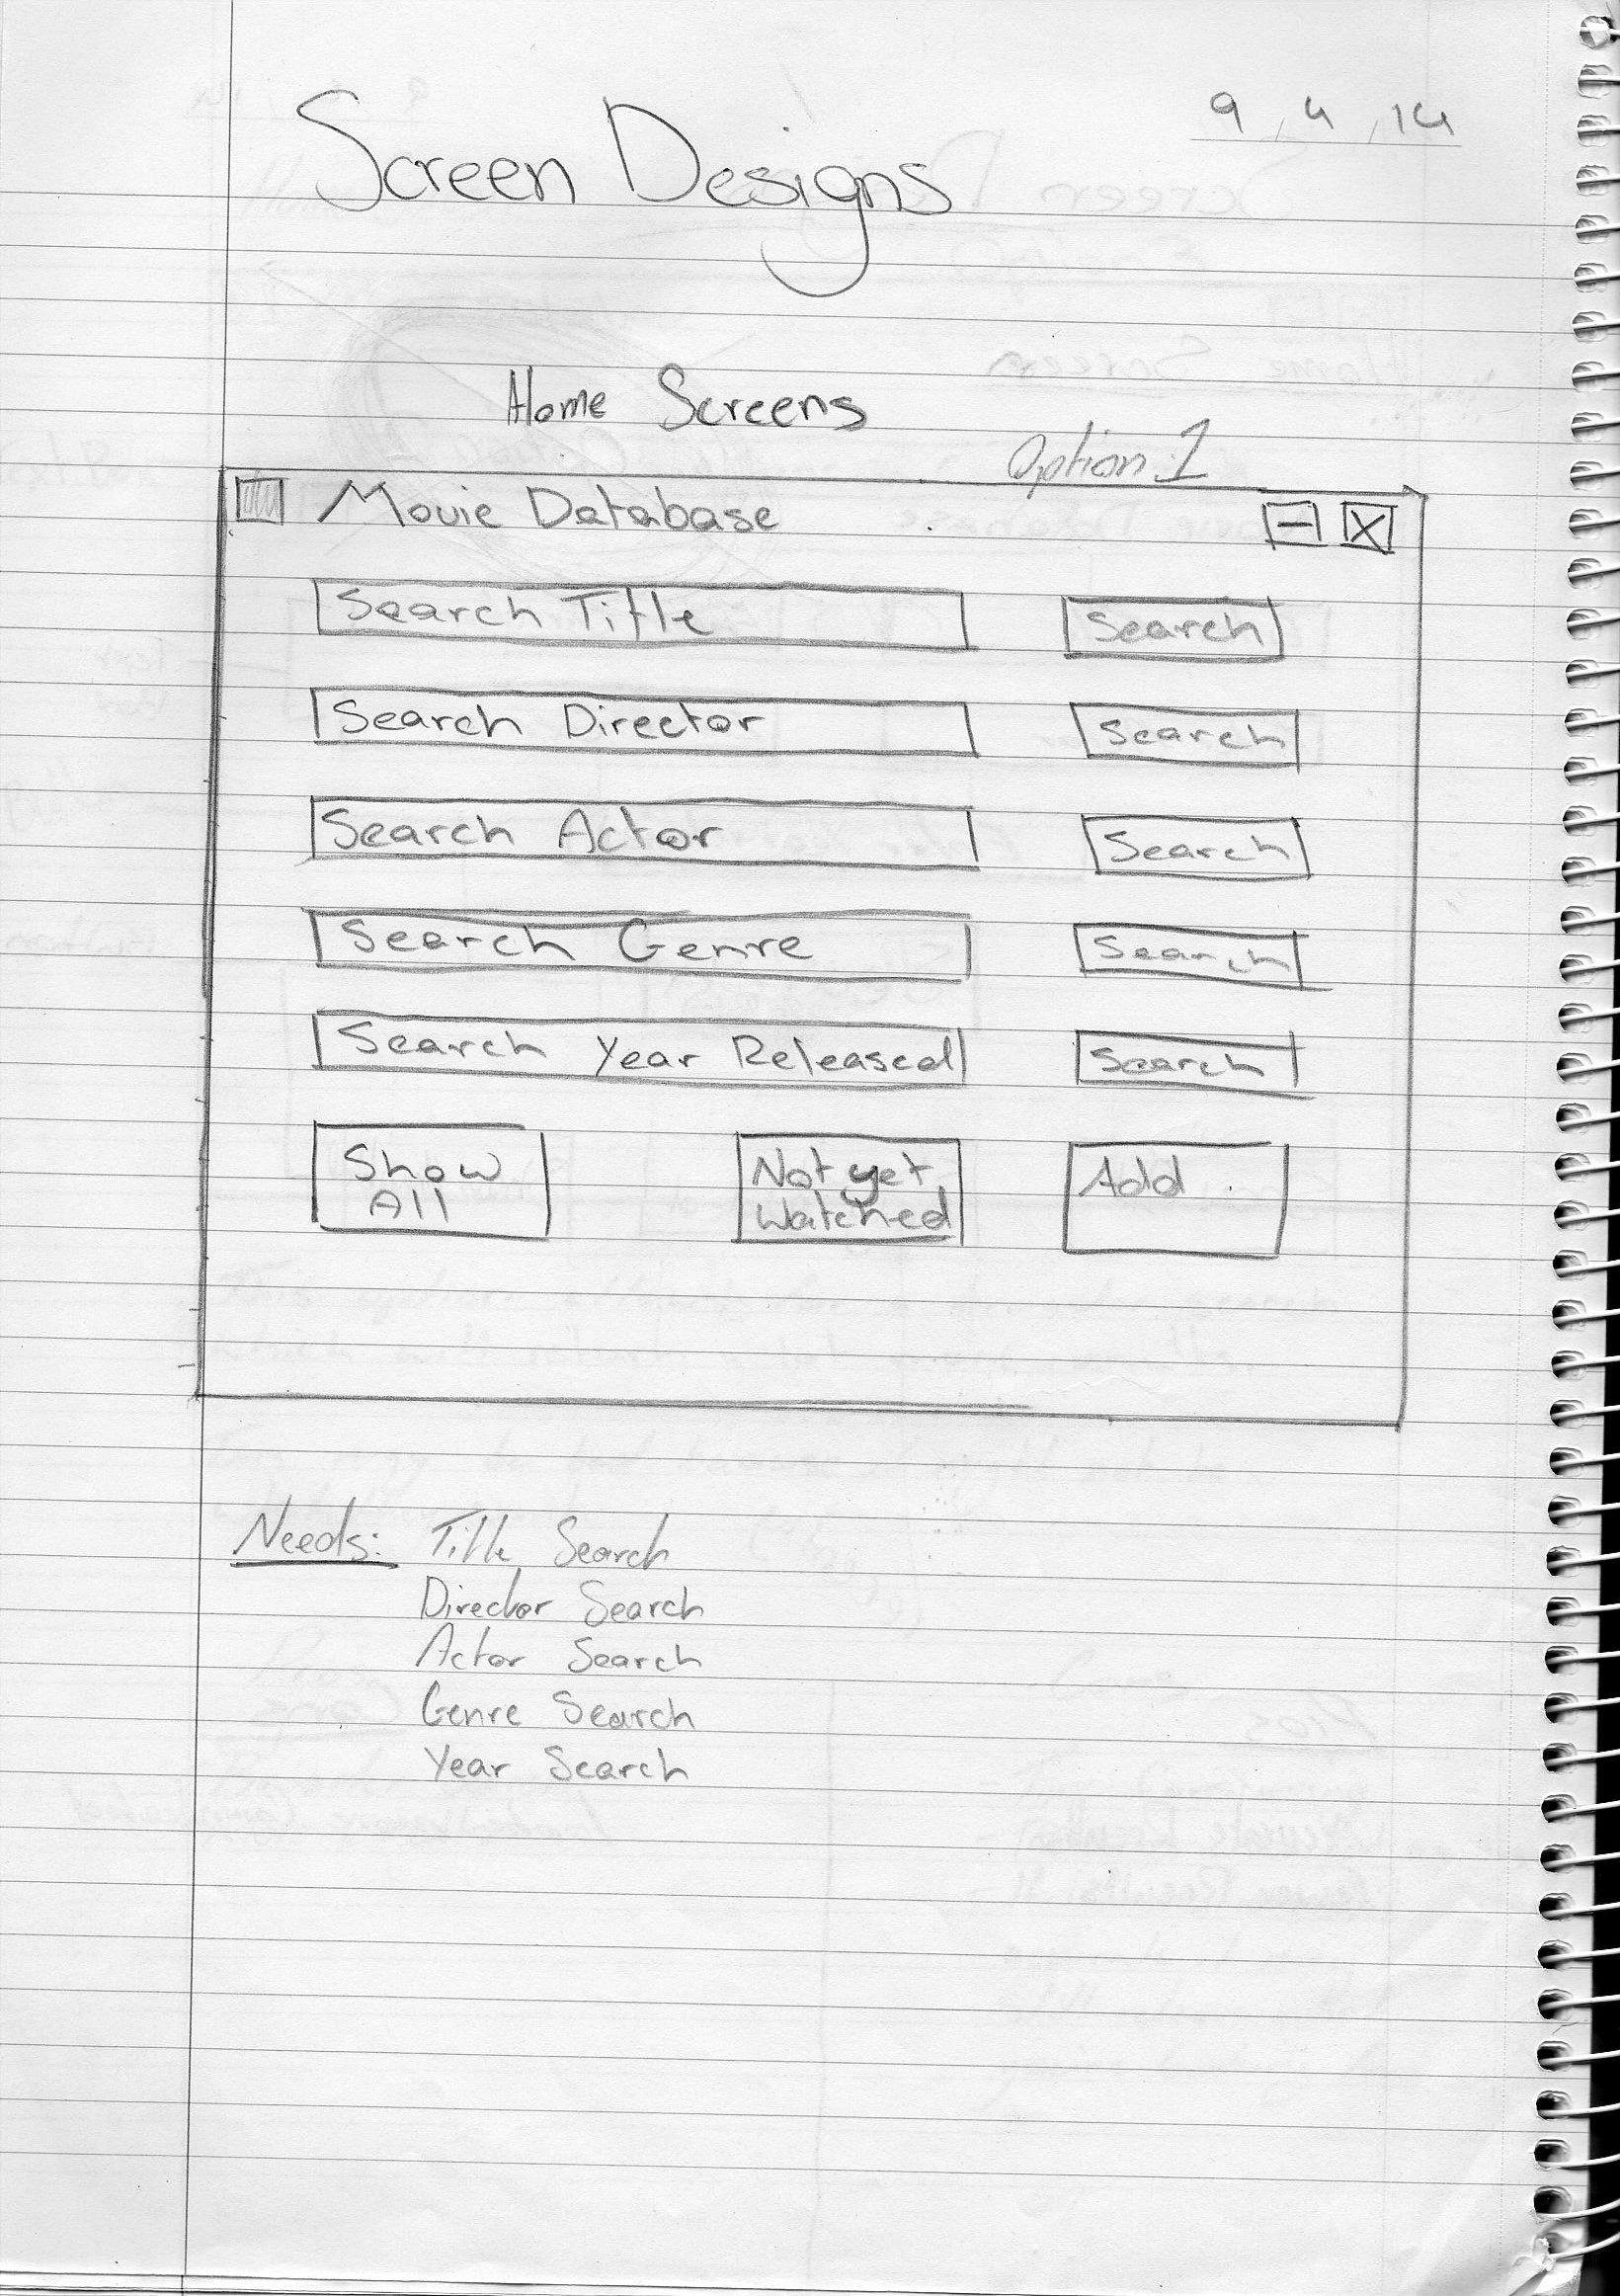 9, 4, 14
Screen Designs
Home Screens
Option 1
Movie Database
Search Title Search
Search Director Search
Search Actor Search
Search Genre Search
Search Year Released Search
Show
All
Not yet
Watched
Add
Needs: Title Search
Director Search
Actor Search
Genre Search
Year Search